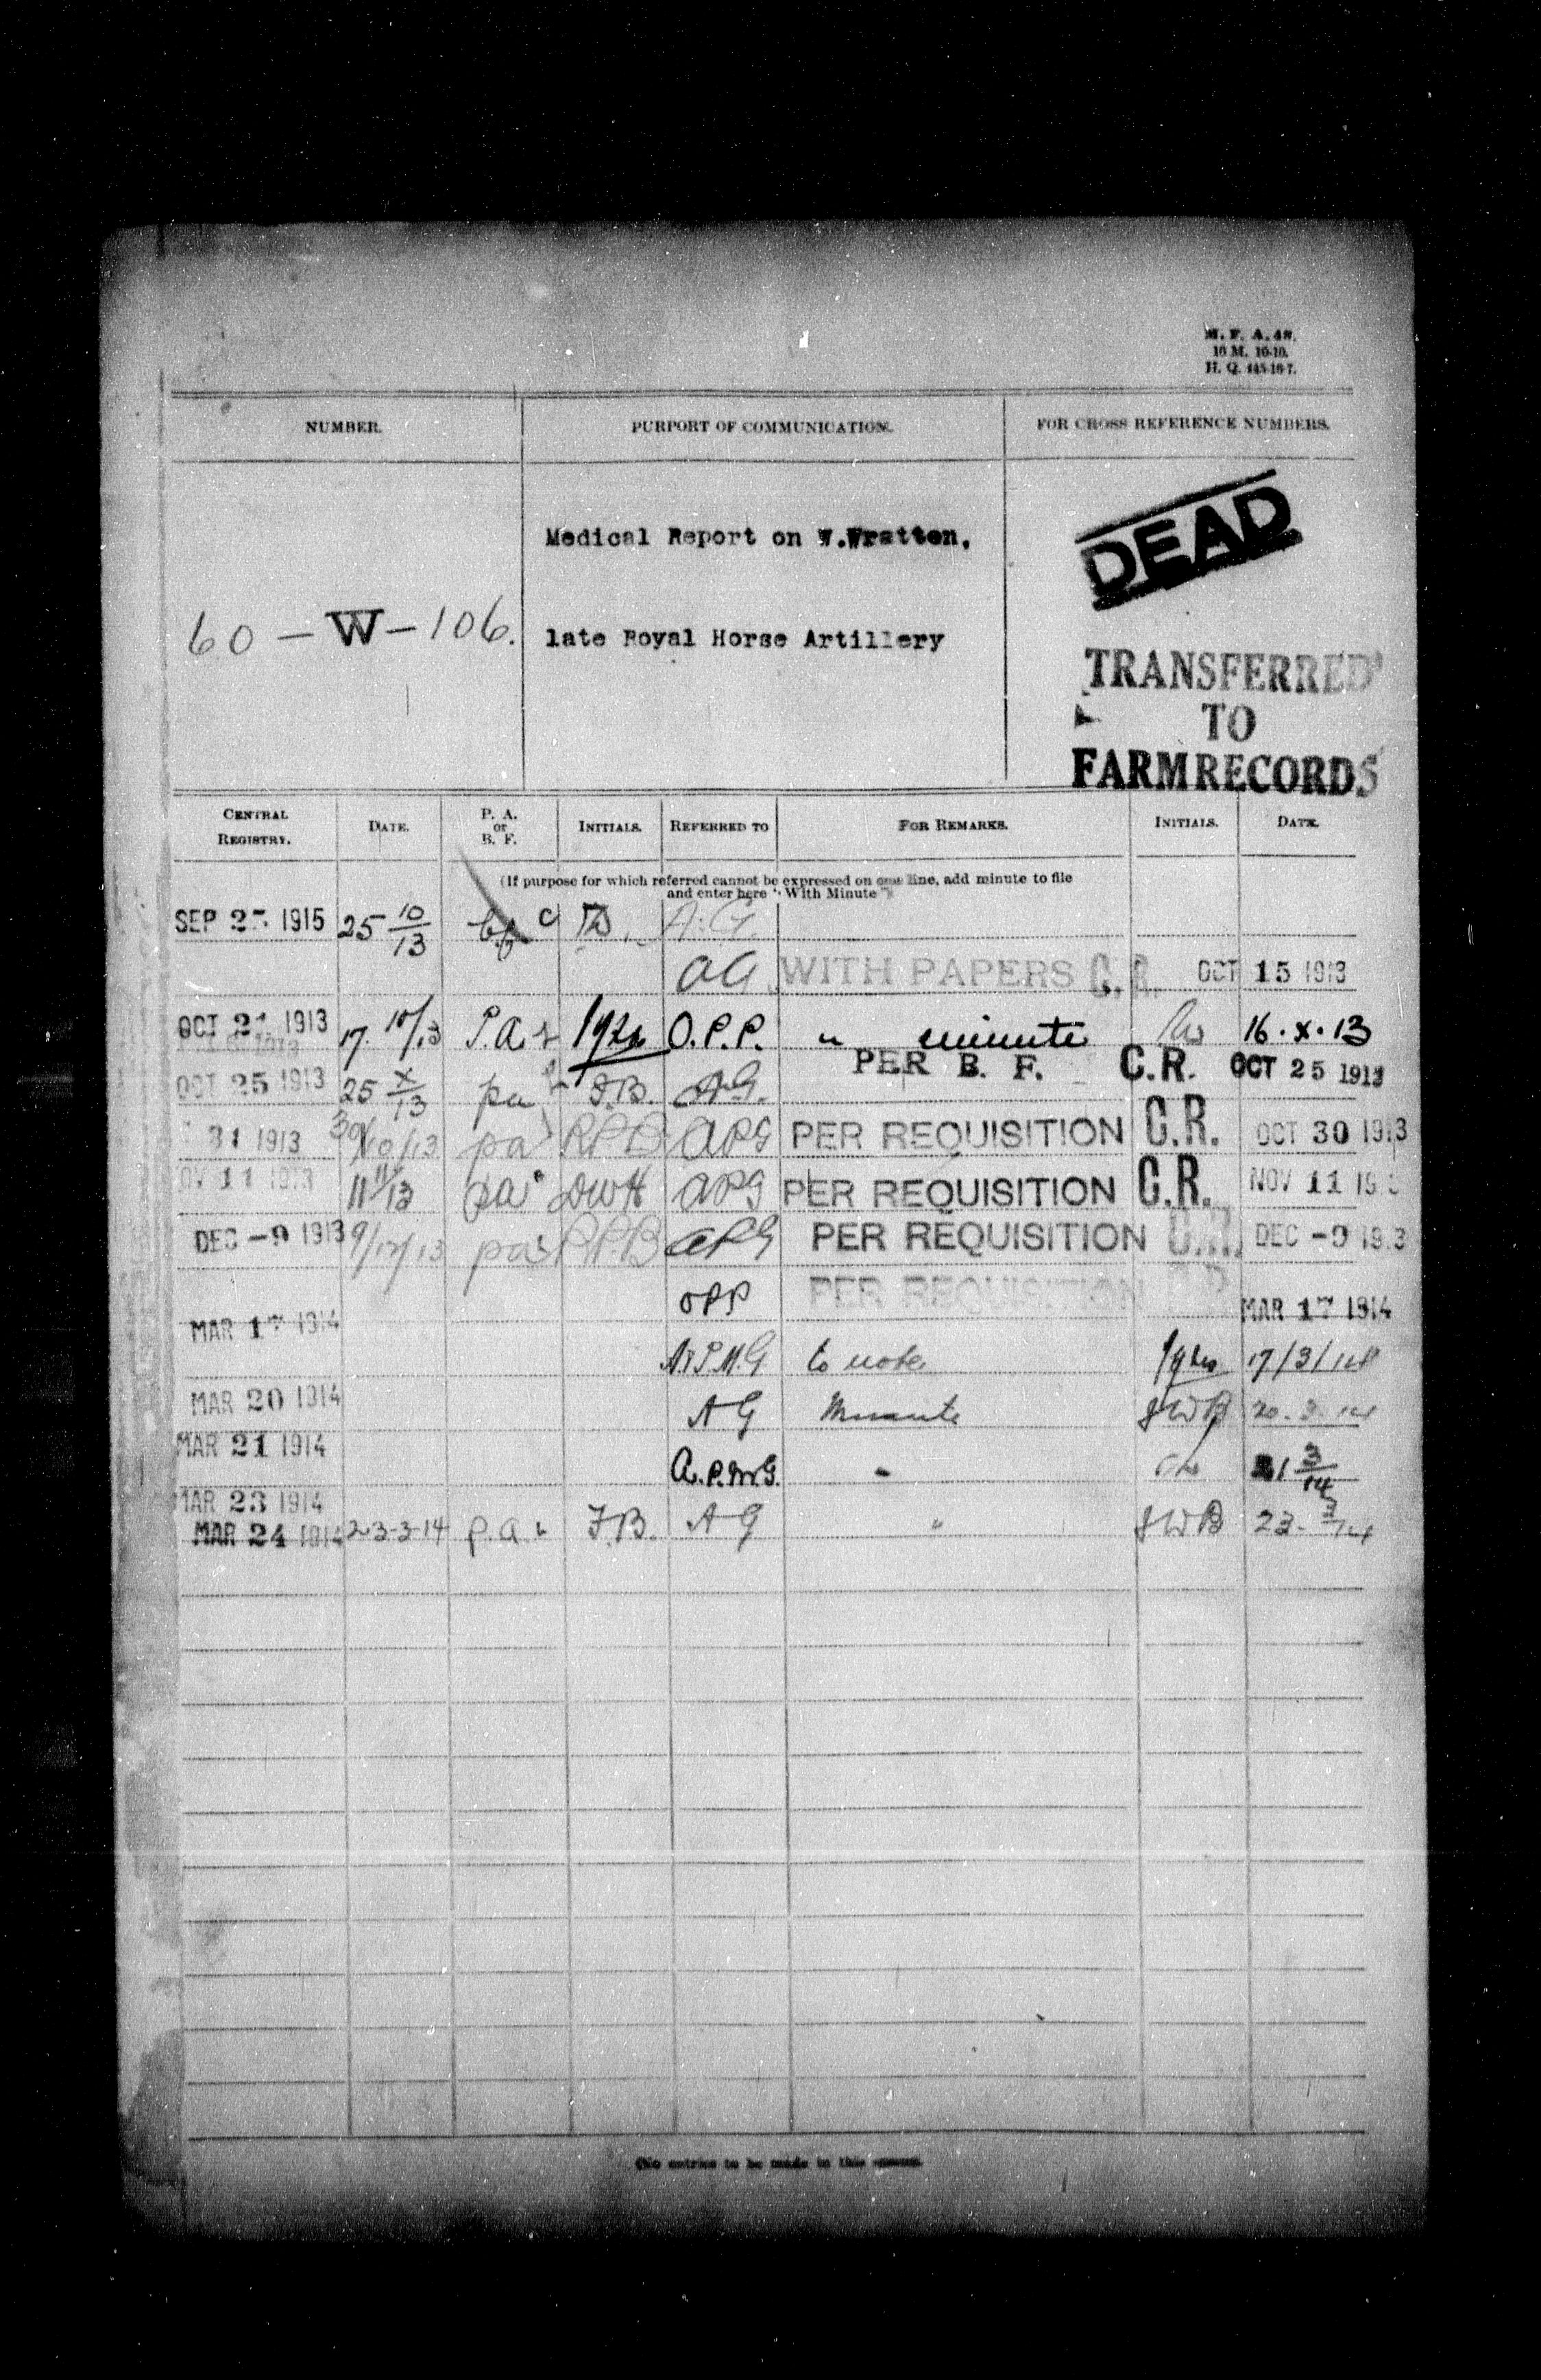 M. F. A. 48.
10 M. 10-10.
H. Q. 445-16-7.
NUMBER. PURPORT OF COMMUNICATION. FOR CROSS REFERENCE NUMBERS.
DEAD
Medical Report on W.Wratten,
60 - W - 106. late Royal Horse Artillery
TRANSFERRED
TO
FARM RECORDS
CENTRAL REGISTRY. DATE. P. A. or B. F. INITIALS. REFERRED TO FOR REMARKS. INITIALS. DATE.
(If purpose for which referred cannot be expressed on one line, add minute to file
and enter here "With Minute")
SEP 25 1915 25 10/13 bf A.G.
AG WITH PAPERS C.R. OCT 15 1913
OCT 21 1913 17. 10/13 P.A. O.P.P. " minute 16.X.13
OCT 25 1913 25 X/13 pa F.B. AG. PER B. F. C.R. OCT 25 1913
31 1913 30/10/13 pa APG PER REQUISITION C.R. OCT 30 1913
NOV 11 1913 11 11/13 pa DWH APG PER REQUISITION C.R. NOV 11 1913
DEC -9 1913 9/12/13 pa R.P.B APG PER REQUISITION C.R. DEC -9 1913
OPP PER REQUISITION C.R. MAR 17 1914
MAR 17 1914
A.P.M.G to note 17/3/14
MAR 20 1914 AG Minute JWB 20.3.14
MAR 21 1914
A.P.M.G. " 21 3/14
MAR 23 1914
MAR 24 1914 23-3-14 p.a. F.B. AG " JWB 23-3/14
(No entries to be made in this space.)